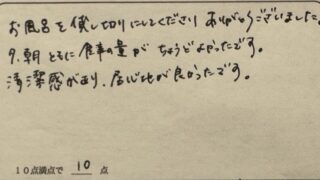 お風呂を貸し切りにしてくださり ありがとうございました。
夕.朝 ともに 食事の量が ちょうどよかったです。
清潔感があり、居心地が良かったです。
10点満点で 10 点